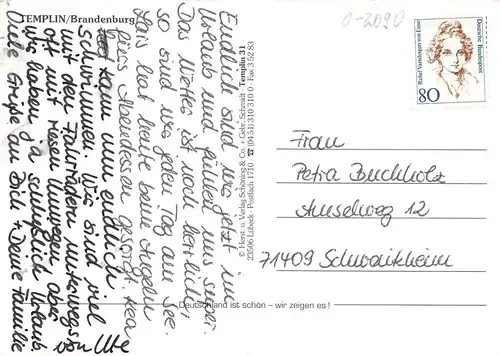 TEMPLIN/Brandenburg
Endlich sind wir jetzt im
Urlaub und fühlen uns super.
Das Wetter ist noch herrlich,
so sind wir jeden Tag am See.
Lars hat heute beim Angeln
fürs Abendessen gesorgt. Lea
kann nun endlich
schwimmen. Wir sind viel
mit den Fahrrädern unterwegs
oft mit riesen Umwegen. Aber
wir haben ja schließlich Urlaub.
Viele Grüße an Dich + Deine Familie
Ute
© Horst u. Verlag Schöning & Co. · Gebr. Schmidt
23506 Lübeck · Postfach 1710 ☎ (0451) 310 310 0 · Fax 3 52 83
Templin 31
Deutschland ist schön – wir zeigen es!
0-2090
Deutsche Bundespost
Rahel Varnhagen von Ense
80
Frau
Petra Buchholz
Anselweg 12
71409 Schwaikheim